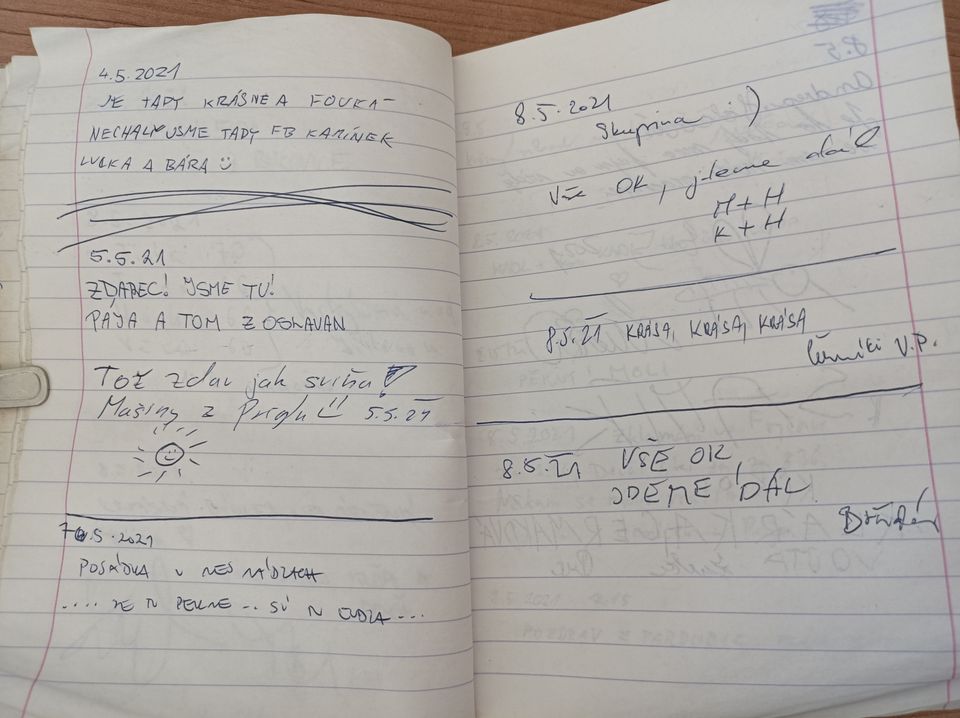 4.5.2021
JE TADY KRÁSNE A FOUKA
NECHALY JSME TADY FB KAMÍNEK
LUCKA A BÁRA
5.5.21
ZDAREC! JSME TU!
PÁJA A TOM Z OSLAVAN
Tož zdar jak sviňa!
Mašiny z Priglu 5.5.21
7.5.2021
POSÁDKA
.... JE TU PEKNE .. SÚ TU ...
8.5.2021
Skupina :)
Vše OK, jdeme dál
M + H
K + H
8.5.21 KRÁSA, KRÁSA, KRÁSA
V.P.
8.5.21 VŠE OK,
JDEME DÁL